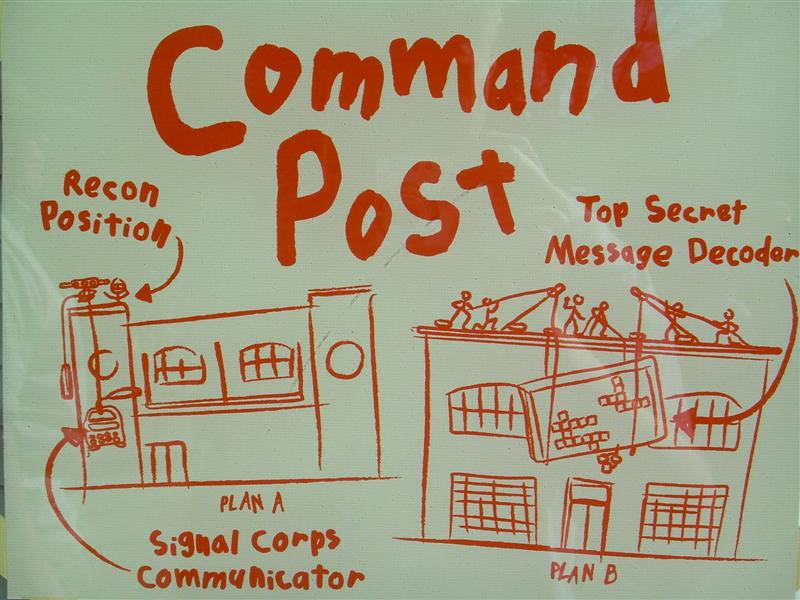 Command
Post
Recon
Position
Top Secret
Message Decoder
PLAN A
PLAN B
Signal Corps
Communicator